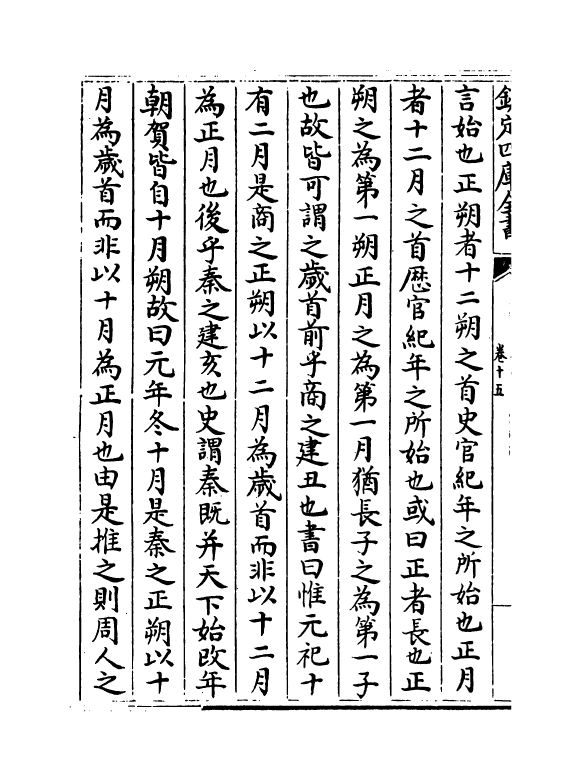 欽定四庫全書
卷十五
言始也正朔者十二朔之首史官紀年之所始也正月
者十二月之首厯官紀年之所始也或曰正者長也正
朔之為第一朔正月之為第一月猶長子之為第一子
也故皆可謂之歲首前乎商之建丑也書曰惟元祀十
有二月是商之正朔以十二月為歲首而非以十二月
為正月也後乎秦之建亥也史謂秦既并天下始改年
朝賀皆自十月朔故曰元年冬十月是秦之正朔以十
月為歲首而非以十月為正月也由是推之則周人之